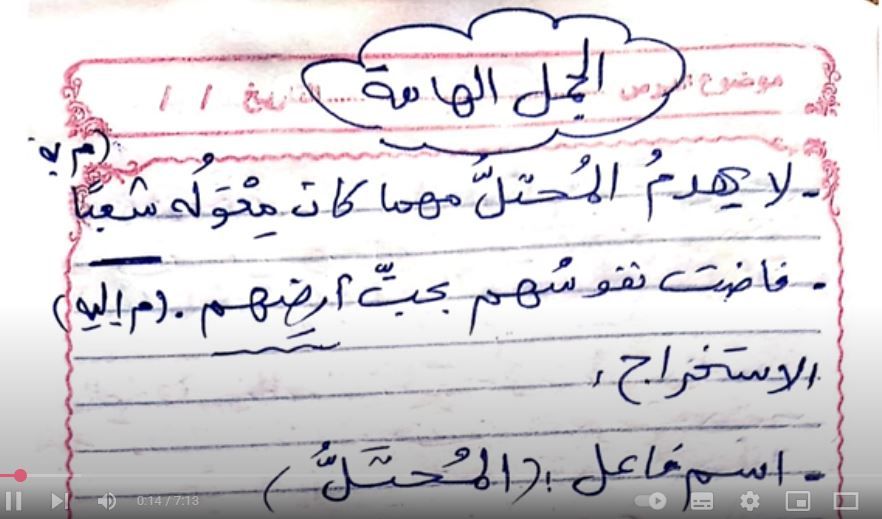 الجمل الهامة
موضوع الدرس التاريخ / /
(م به
- لا يهدمُ المُحتلُّ مهما كان مِعْوَلُه شعبًا
- فاضت نفوسُهم بحبِّ أرضِهم. (م إليه)
الاستخراج:
- اسم فاعل: (المُحتَلُّ)
0:14 / 7:13